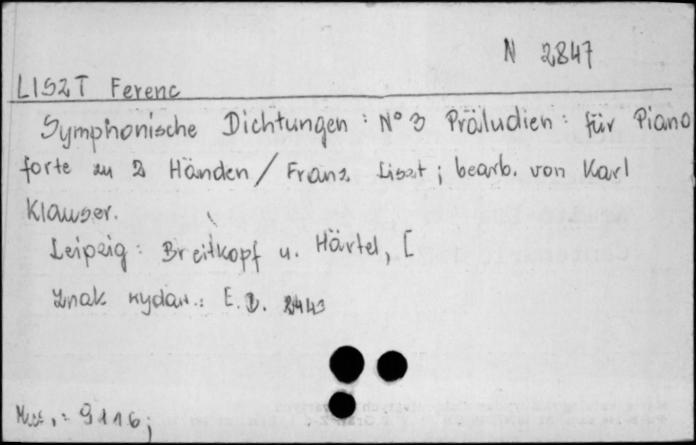 N 2847
LISZT Ferenc
Symphonische Dichtungen : Nº 3 Präludien : für Piano
forte zu 2 Händen / Franz Liszt ; bearb. von Karl
Klauser.
Leipzig : Breitkopf u. Härtel, [
Znak wydaw.: E. B. 2443
9116;